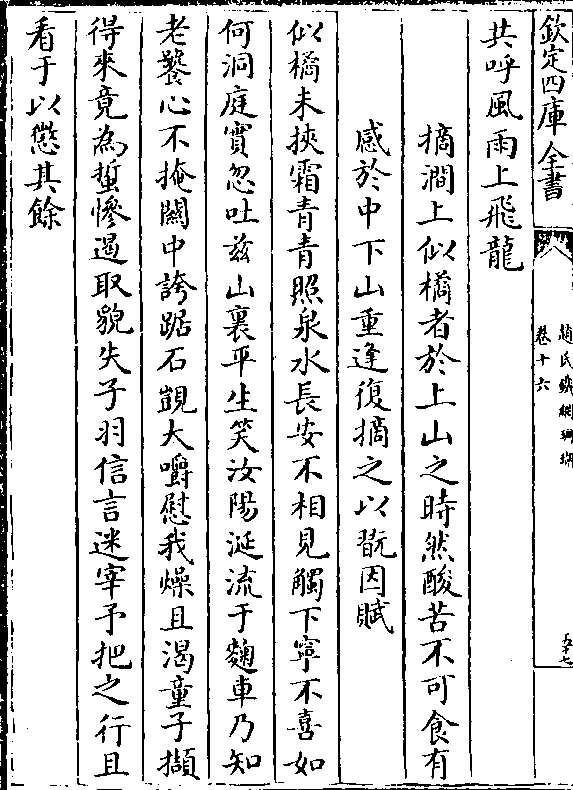 欽定四庫全書
趙氏鐵網珊瑚
卷十六
五十七
共呼風雨上飛龍
摘澗上似橘者於上山之時然酸苦不可食有
感於中下山重逢復摘之以翫因賦
似橘未挾霜青青照泉水長安不相見觸下寧不喜如
何洞庭實忽吐兹山裏平生笑汝陽涎流于麴車乃知
老饕心不掩闗中誇踞石覬大嚼慰我燥且渴童子擷
得來竟為蜇慘遏取貌失子羽信言迷宰予把之行且
看于以懲其餘